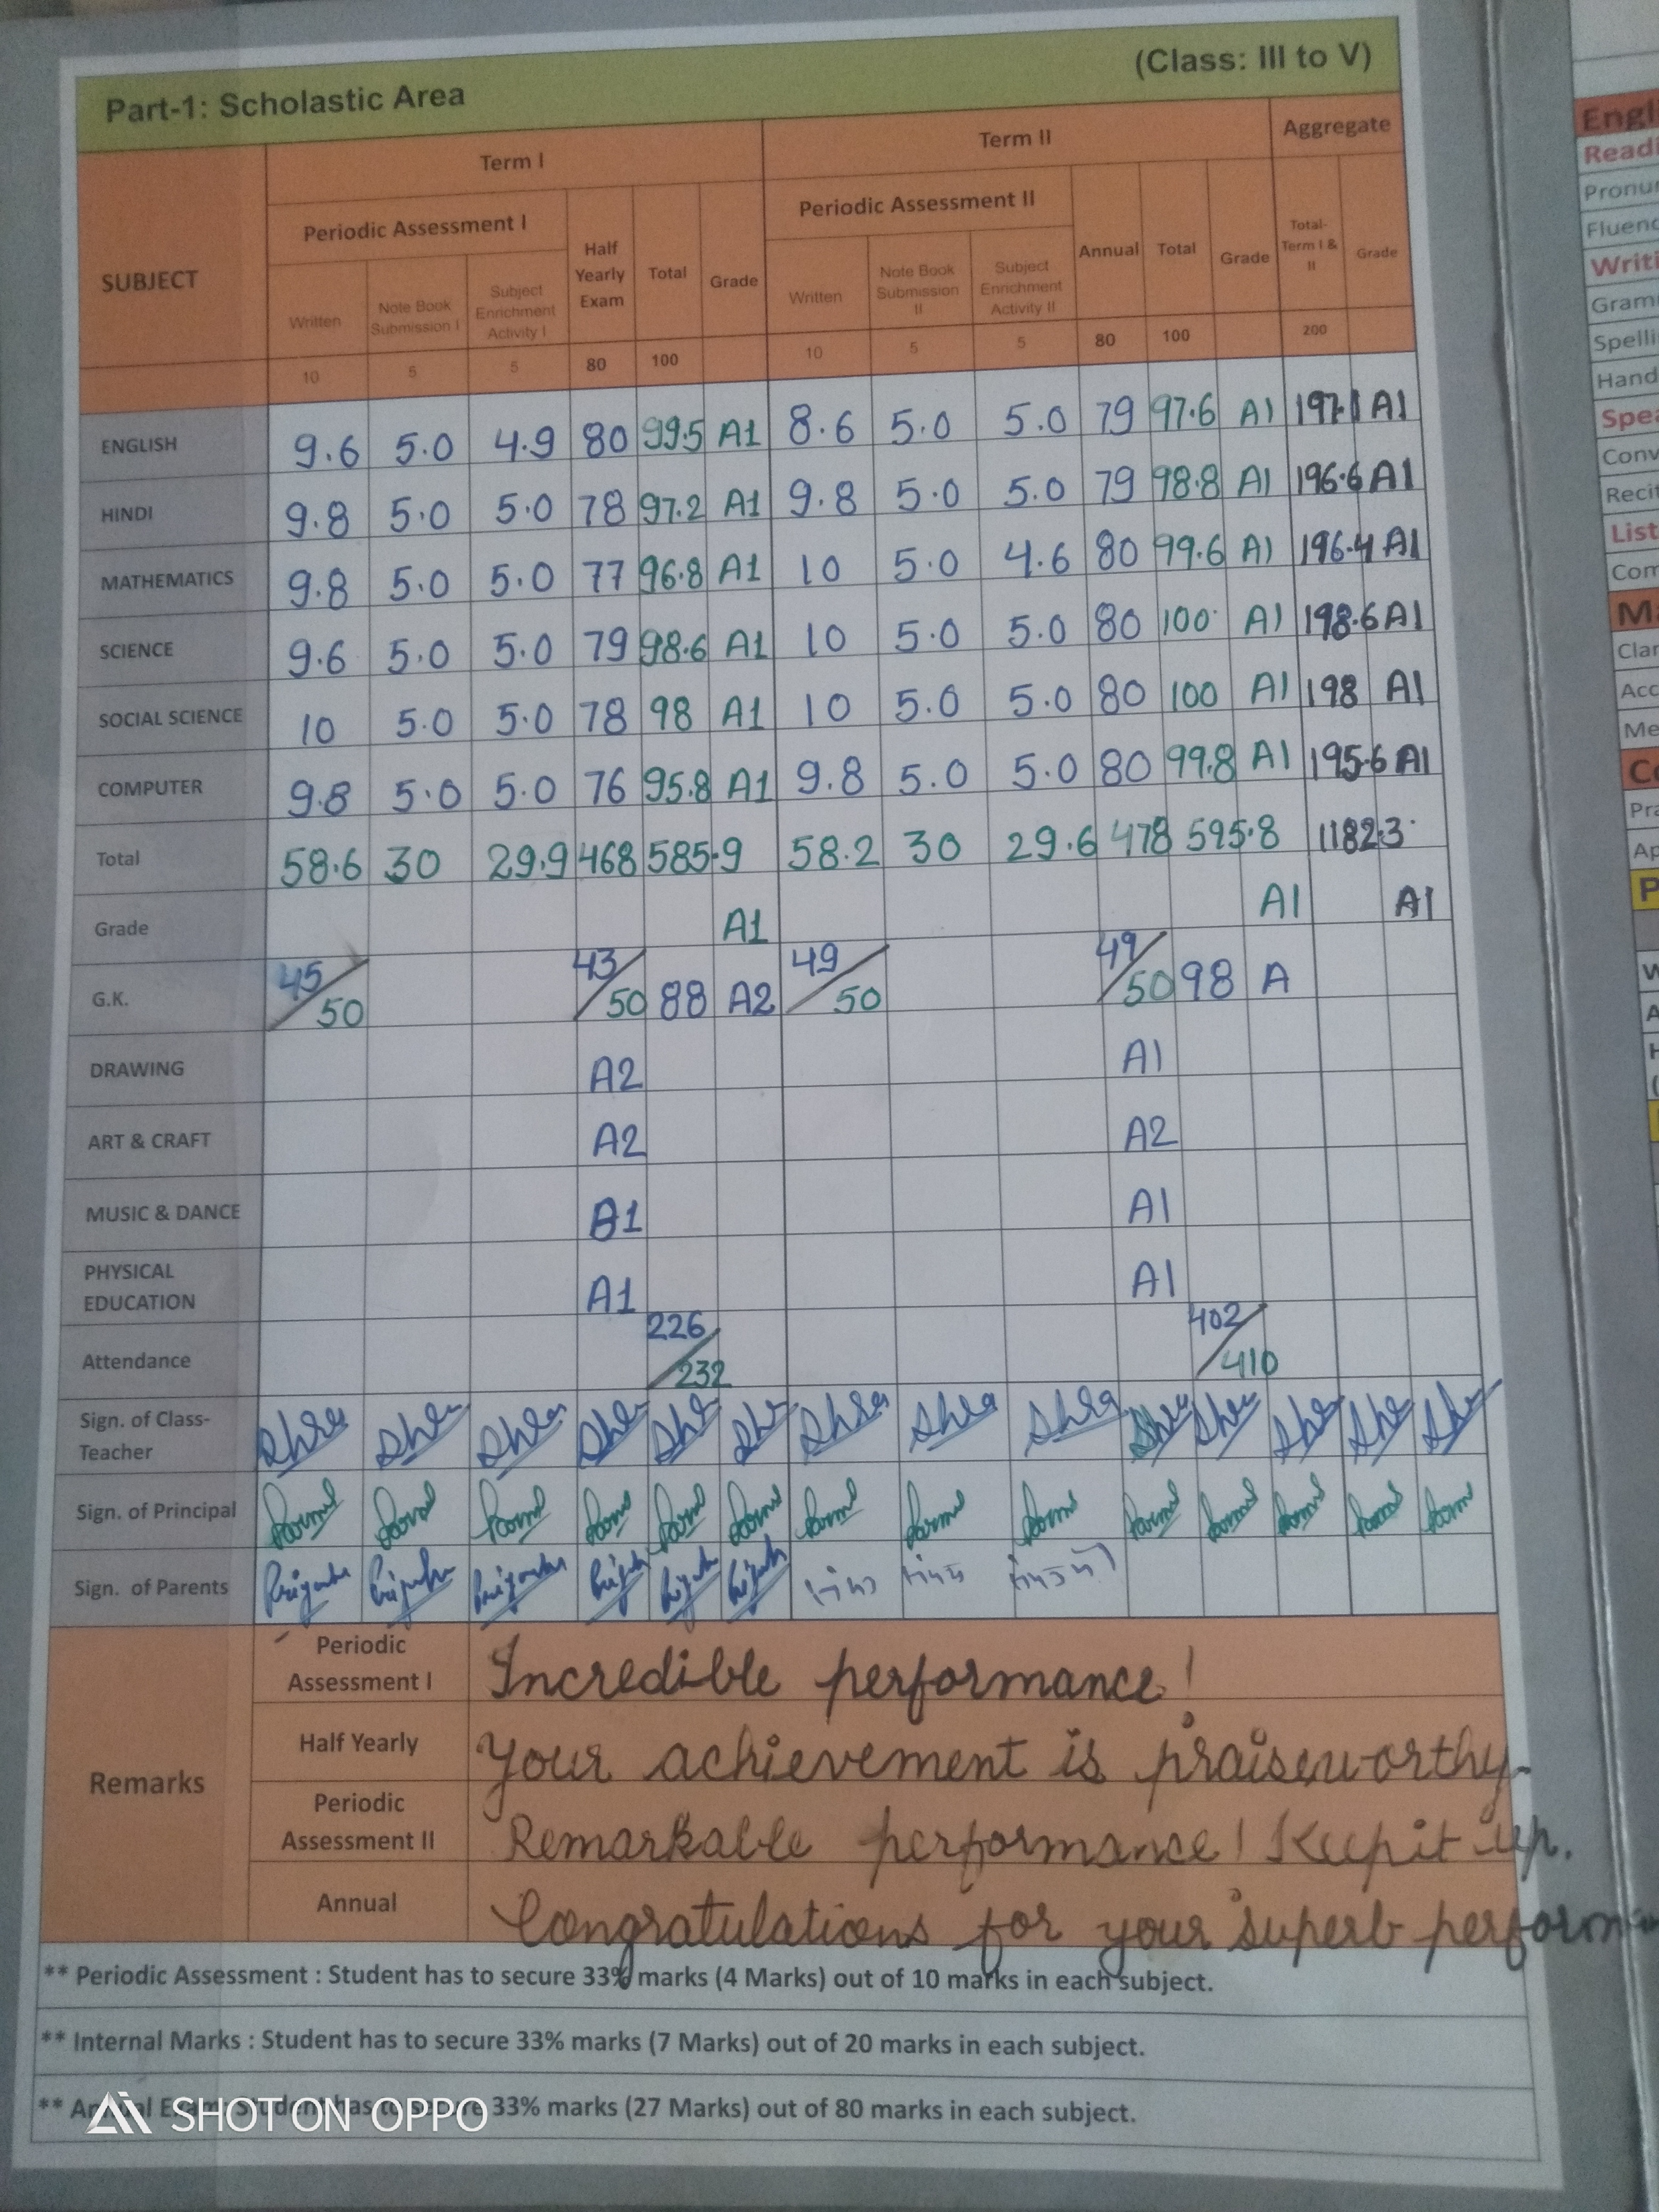 Part-1: Scholastic Area (Class: III to V)
SUBJECT Term I Term II Aggregate
Periodic Assessment I Half Yearly Exam Total Grade Periodic Assessment II Annual Total Grade Total-Term I & II Grade
Written Note Book Submission I Subject Enrichment Activity I Written Note Book Submission II Subject Enrichment Activity II
10 5 5 80 100 10 5 5 80 100 200
ENGLISH 9.6 5.0 4.9 80 99.5 A1 8.6 5.0 5.0 79 97.6 A1 197.1 A1
HINDI 9.8 5.0 5.0 78 97.2 A1 9.8 5.0 5.0 79 98.8 A1 196.6 A1
MATHEMATICS 9.8 5.0 5.0 77 96.8 A1 10 5.0 4.6 80 99.6 A1 196.4 A1
SCIENCE 9.6 5.0 5.0 79 98.6 A1 10 5.0 5.0 80 100 A1 198.6 A1
SOCIAL SCIENCE 10 5.0 5.0 78 98 A1 10 5.0 5.0 80 100 A1 198 A1
COMPUTER 9.8 5.0 5.0 76 95.8 A1 9.8 5.0 5.0 80 99.8 A1 195.6 A1
Total 58.6 30 29.9 468 585.9 58.2 30 29.6 478 595.8 1182.3
Grade A1 A1 A1
G.K. 45/50 43/50 88 A2 49/50 49/50 98 A
DRAWING A2 A1
ART & CRAFT A2 A2
MUSIC & DANCE B1 A1
PHYSICAL EDUCATION A1 A1
Attendance 226/232 402/410
Sign. of Class-Teacher
Sign. of Principal
Sign. of Parents
Remarks
Periodic Assessment I Incredible performance!
Half Yearly Your achievement is praiseworthy.
Periodic Assessment II Remarkable performance! Keep it up.
Annual Congratulations for your superb perform
** Periodic Assessment : Student has to secure 33% marks (4 Marks) out of 10 marks in each subject.
** Internal Marks : Student has to secure 33% marks (7 Marks) out of 20 marks in each subject.
** Student has to secure 33% marks (27 Marks) out of 80 marks in each subject.
SHOT ON OPPO